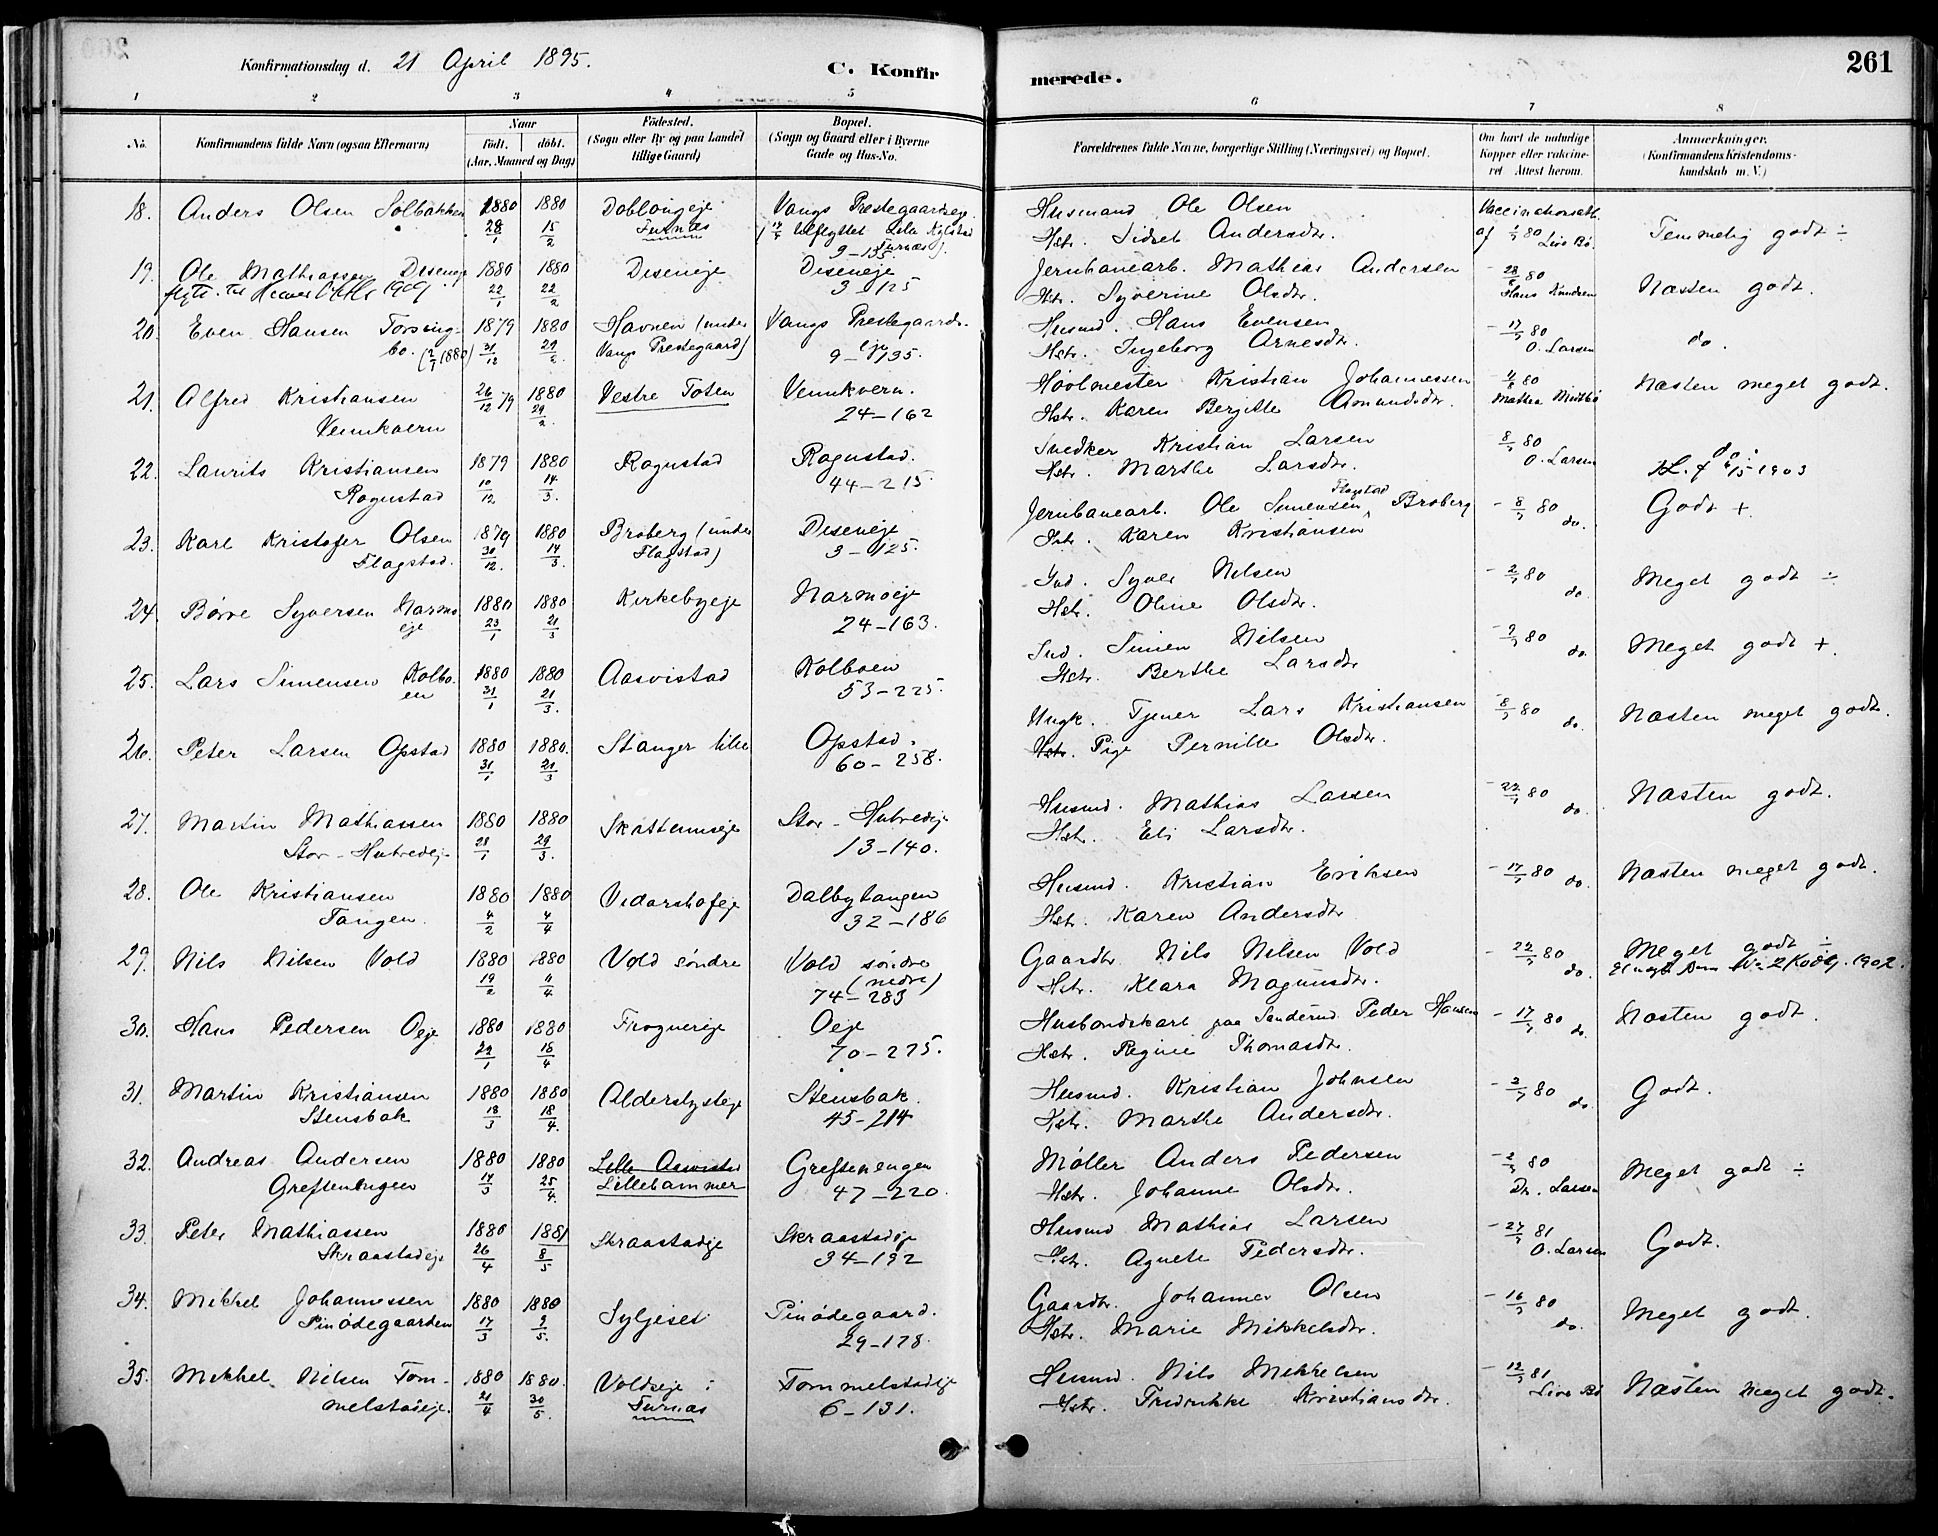 Konfirmationsdag d. 21 April 1895.
C. Konfirmerede.
261
1 2 3 4 5 6 7 8
No. Konfirmandens fulde Navn (ogsaa Efternavn) Naar født. døbt. (Aar, Maaned og Dag) Fødested. (Sogn eller By og paa Landet tillige Gaard) Bopæl. (Sogn og Gaard eller i Byerne Gade og Hus-No. Forældrenes fulde Navne, borgerlige Stilling (Næringsvei) og Bopæl. Om havt de naturlige Kopper eller vaccineret Attest herom. Anmerkninger. (Konfirmandens Kristendomskundskab m. V.)
18. Anders Olsen Solbakken 1880 28/1 1880 15/2 Doblougeje Furnæs Vangs Prestegaardseje 9-135 Husmand Ole Olsen
Hstr. Sidsel Andersdtr. Vaccinationsatt. af 80 Temmelig godt ÷
19. Ole Mathiassen Diseneje 1880 22/1 1880 22/2 Diseneje Diseneje 3-125 Jernbanearb. Mathias Andersen
Hstr. Syverine Olsdtr. 80 Hans Knudsen Næsten godt.
20. Even Hansen Torsengbo. 1879 31/12 1880 29/2 Havnen (under Vangs Prestegaard) Vangs Prestegaardseje 9-135 Husmd. Hans Evensen
Hstr. Ingeborg Arnesdtr. 17/ 80 O. Larsen do.
21. Alfred Kristiansen Vennkvern 26/12 79 1880 29/2. Vestre Toten Vennkvern. 24-162 Høvlmester Kristian Johannessen
Hstr. Karen Bergitte Amundsdtr. 80 Næsten meget godt.
22. Laurits Kristiansen Rogustad 1879 10/12 1880 14/3. Rogustad Rogustad. 44-215. Snedker Kristian Larsen
Hstr. Marthe Larsdtr. 8/ 80 O. Larsen do. 1903
23. Karl Kristofer Olsen Flagstad. 1879 30/12. 1880 14/3. Broberg (under Flagstad) Diseneje 3-125. Jernbanearb. Ole Simensen Flagstad Broberg
Hstr. Karen Kristiansen - 8/ 80 do. Godt +
24. Børre Syversen Narmoeje 1880 23/1 1880 21/3 Kirkebyeje Narmoeje 24-163. Ind. Syver Nilsen
Hstr. Oline Olsdtr. - 2/ 80 do. Meget godt ÷
25. Lars Simensen Kolboen 1880 31/1 1880 21/3. Aasvistad Kolboen 53-225. Ind. Simen Nilsen
Hstr. Berthe Larsdtr - 80 do. Meget godt +.
26. Peter Larsen Opstad 1880 31/1 1880. 21/3 Stanger lille Opstad. 60-258. Ungk. Tjener Lars Kristiansen
Hstr. Pige Pernille Olsdtr. - 8/ 80 do. Næsten meget godt.
27. Martin Mathiassen Stor-Hubredeje 1880 28/1 1880 29/3. Skattumseje Stor-Hubredeje 13-140. Husmd. Mathias Larsen
Hstr. Eli Larsdtr. - 22/ 80 do. Næsten godt.
28. Ole Kristiansen Tangen. 1880 4/2 1880 4/4 Vidarshofeje Dalbytangen 32-186 Husmd. Kristian Eriksen
Hstr. Karen Andersdtr. - 17/ 80 do. Næsten meget godt.
29. Nils Nilsen Vold 1880 19/2 1880 4/4 Vold søndre Vold søndre (nedre) 74-283 Gaardbr. Nils Nilsen Vold
Hstr. Klara Magnusdtr. - 22/ 80 do. Meget godt ÷ 1902.
30. Hans Pedersen Oeje 1880 29/1 1880 18/4 Frognereje Oeje 70-275. Husbondskarl paa Sanderud Peder Hansen
Hstr. Regine Thomasdtr. - 17/ 80 do. Næsten godt.
31. Martin Kristiansen Stensbak 1880 18/3 1880 18/4. Alderslysteje Stensbak. 45-214 Husmd. Kristian Johnsen
Hstr. Marthe Andersdtr. - 2/ 80 do. Godt.
32. Andreas Andersen Greftenengen 1880 14/3 1880 25/4. Lille Aasvistad Lillehammer Greftenengen 47-220. Møller Anders Pedersen
Hstr. Johanne Olsdtr. - 2/ 80 Larsen Meget godt ÷
33. Peter Mathiassen Skraastadeje 1880 26/4 1881 8/5 Skraastadeje Skraastadeje 34-192 Husmd Mathias Larsen
Hstr. Agnete Pedersdtr. - 27/ 81 O. Larsen Godt.
34. Mikkel Johannessen Pinødegaarden 1880 17/3 1880 9/5. Syljeset Pinødegaard. 29-178. Gaardbr. Johannes Olsen
Hstr. Marie Mikkelsdtr. - 16/ 80 do. Meget godt.
35. Mikkel Nilsen Tommelstadeje. 1880 21/4 1880. 30/5. Voldseje i Furnæs Tommelstadeje 6-131. Husmd. Nils Mikkelsen
Hstr. Fredrikke Kristiansdtr. - 12/ 81 Næsten meget godt.